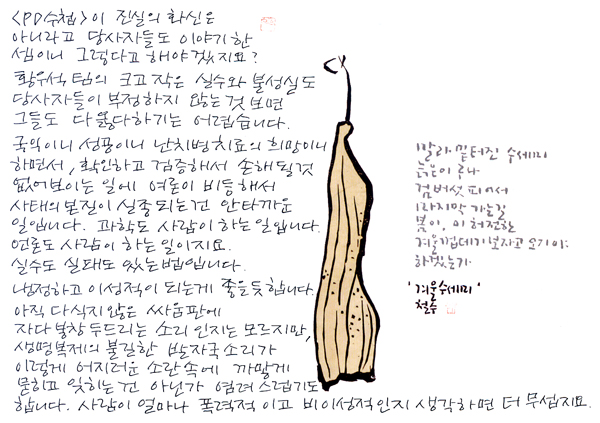 <PD수첩>이 진실의 화신은
아니라고 당사자들도 이야기 한
셈이니 그렇다고 해야겠지요?
황우석팀의 크고 작은 실수와 불성실도
당사자들이 부정하지 않는것 보면
그들도 다 옳다하기는 어렵습니다.
국익이니 성공이니 난치병치료의 희망이니
하면서, 확인하고 검증해서 손해될 것
없어보이는 일에 여론이 비등해서
사태의 본질이 실종되는건 안타까운
일입니다. 과학도 사람이 하는 일입니다.
언론도 사람이 하는 일이지요.
실수도 실패도 있는 법입니다.
냉정하고 이성적이 되는게 좋을듯 합니다.
아직 다 식지 않은 싸움판에
자다 봉창 두드리는 소리인지는 모르지만,
생명복제의 불길한 발자국 소리가
이렇게 어지러운 소란 속에 까맣게
묻히고 잊히는건 아닌가 염려스럽기도
합니다. 사람이 얼마나 폭력적이고 비이성적인지 생각하면 더 무섭지요.
말라 밑터진 수세미
늙은이 르나
검버섯 피어서
마지막 가는길
봄이, 이 허전한
겨울껍데기 보자고 오기야
하겠는가
'겨울수세미'
철수